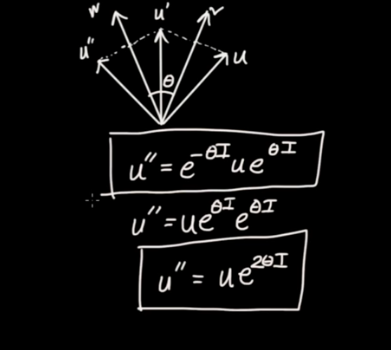 w u' v
u'' θ u
u'' = e^{-θI} u e^{θI}
u'' = u e^{θI} e^{θI}
u'' = u e^{2θI}